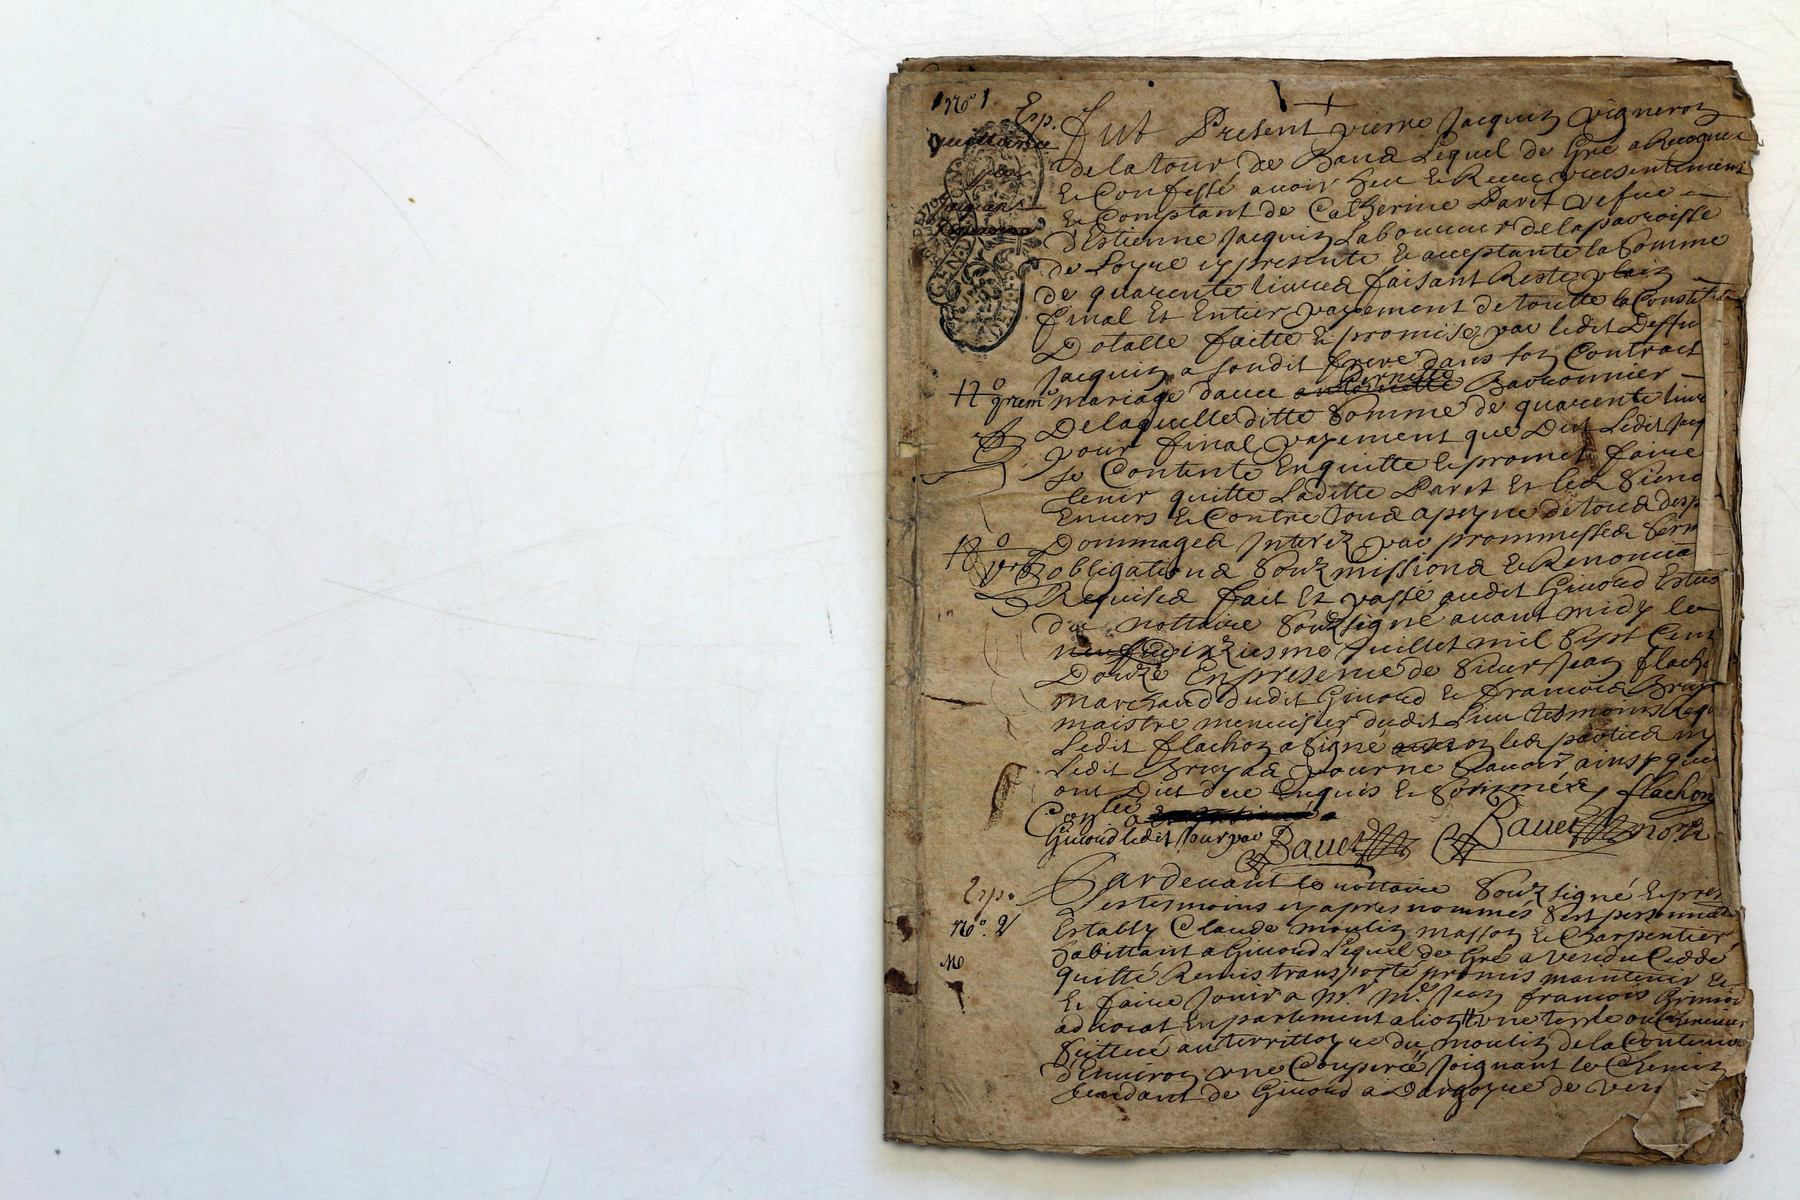 No 1
Exp.
quittance
Fut Present pierre Jacquin vigneron
de la tour de Laquel de Gré a Recognu
et Confessé avoir heu et Receu presentement
et Comptant de Catherine Paret vefue
d'Estienne Jacquin Laboureur de la parroisse
de Loyre cy presente et acceptante la Somme
de quarente livres faisant Reste plain
final Et Entier payement de toutte la Constitu
Dotalle faitte et promise par ledit Deffu
Jacquin a sondit frere dans son Contract
mariage avec pernette Barronnier
De laquelle ditte Somme de quarente livr
pour final payement que Dit Ledit Jacq
se Contente En quitte et promet faire
tenir quitte Laditte Paret Et les Siens
Enuers et Contre tous a peyne de tous desp
Dommages Interez par prommesses Serm
obligations Soubzmissions et Renoncia
Requises fait Et passé audit Giuord Estud
du nottaire Soubzsigné auant midy le
dixziesme Juillet mil Sept Cent
Douze En presence de Sieur Jean flacho
marchand dudit Giuord et francois Bruy
maistre menuisier dudit Lieu tesmoins Requ
Ledit flachon a Signé non les parties ny
Ledit Bruyas pour ne Scauoir ainsy qu'ils
ont Dit de ce Enquis et Sommés flachon
Conlé a
Giuord ledit Jour par Bauet Bauet nore
Exp.
No. 2
Pardeuant le nottaire Soubzsigné et pres
Les tesmoins cy apres nommés S'est personnel
Estably Claude moulin masson et Charpentier
habittant a Giuord Lequel de Gré a Vendu Ceddé
quitté Remis transporté promis maintenir et
et faire Jouir a Mr. Me. Jean francois Grimod
aduocat En parlement a lion une terre ou
Scittuée au territtoyre du moulin de la Contenue
d'Enuiron une Couperée Joignant le Chemin
tendant de Giuord a Dargoyre de vent